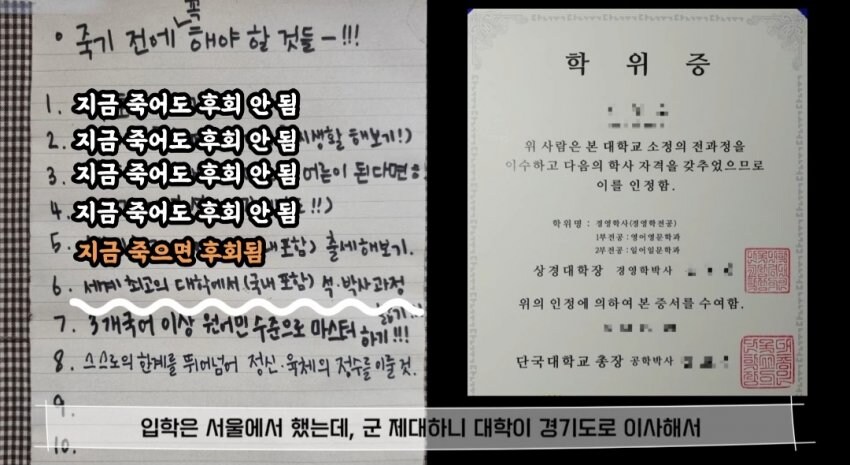 • 죽기 전에 꼭 해야 할 것들-!!!
1. 지금 죽어도 후회 안 됨
2. 지금 죽어도 후회 안 됨 해보기!)
3. 지금 죽어도 후회 안 됨 어른이 된다면
4. 지금 죽어도 후회 안 됨 !!)
5. 지금 죽으면 후회됨 포함) 출세해보기.
6. 세계 최고의 대학에서 (국내 포함) 석·박사 과정
7. 3개국어 이상 원어민 수준으로 마스터 하기!!!
8. 스스로의 한계를 뛰어넘어 정신·육체의 정수를 이룰 것.
9.
10.
학 위 증
위 사람은 본 대학교 소정의 전과정을
이수하고 다음의 학사 자격을 갖추었으므로
이를 인정함.
학위명 : 경영학사(경영학전공)
1부전공 : 영어영문학과
2부전공 : 일어일문학과
상경대학장 경영학박사
위의 인정에 의하여 본 증서를 수여함.
단국대학교 총장 공학박사
입학은 서울에서 했는데, 군 제대하니 대학이 경기도로 이사해서